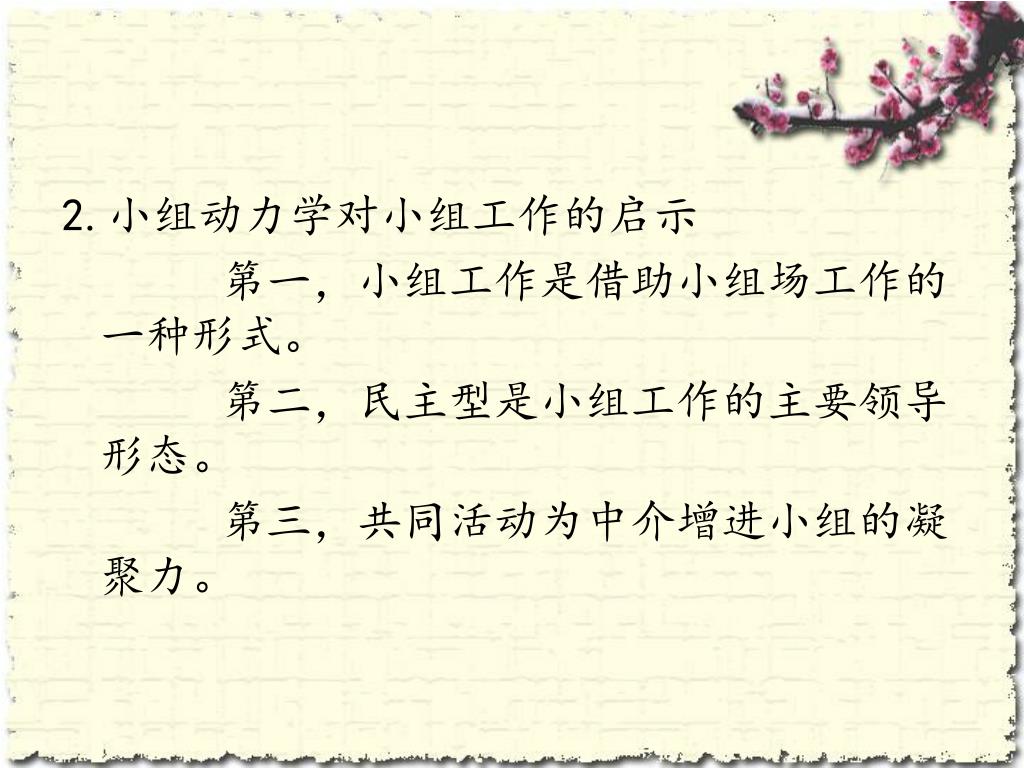 2.小组动力学对小组工作的启示
第一，小组工作是借助小组场工作的
一种形式。
第二，民主型是小组工作的主要领导
形态。
第三，共同活动为中介增进小组的凝
聚力。